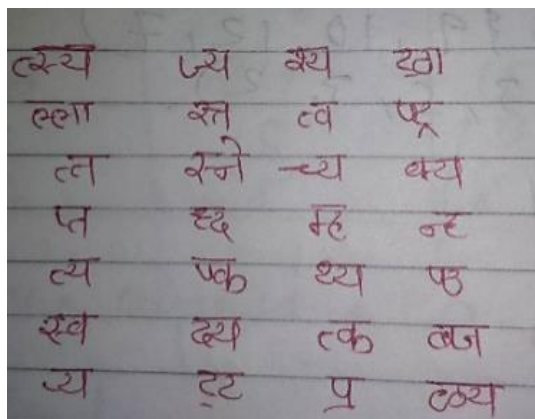 त्स्य ज्य श्य ख्रा
ल्ला स्त त्व ष्ट्र
त्त स्ने च्य क्य
प्त द्ध म्ह न्ह
त्य ष्क थ्य ष्ठ
स्व द्य त्क ब्ज
ज्य ट्ट प्र ळ्य